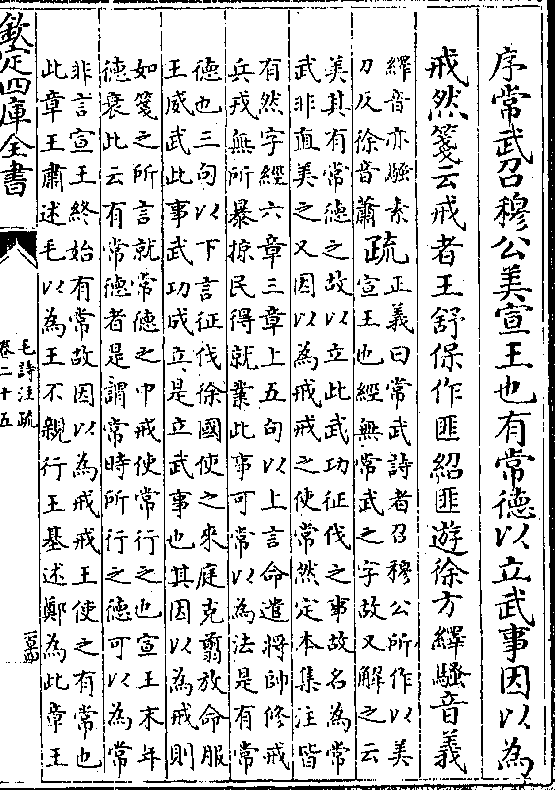 序常武召穆公美宣王也有常德以立武事因以為
戒然箋云戒者王舒保作匪紹匪遊徐方繹騷音義
繹音亦騷素
刀反徐音蕭
疏
正義曰常武詩者召穆公所作以美
宣王也經無常武之字故又解之云
美其有常德之故以立此武功征伐之事故名為常
武非直美之又因以為戒戒之使常然定本集注皆
有然字經六章三章上五句以上言命遣將帥修戒
兵戎無所暴掠民得就業此事可常以為法是有常
德也三句以下言征伐徐國使之來庭克翦放命服
王威武此事武功成立是立武事也其因以為戒則
如箋之所言就常德之中戒使常行之也宣王末年
德衰此云有常德者是謂常時所行之德可以為常
非言宣王終始有常故因以為戒戒王使之有常也
此章王肅述毛以為王不親行王基述鄭為此章王
欽定四庫全書
毛詩注疏
卷二十五